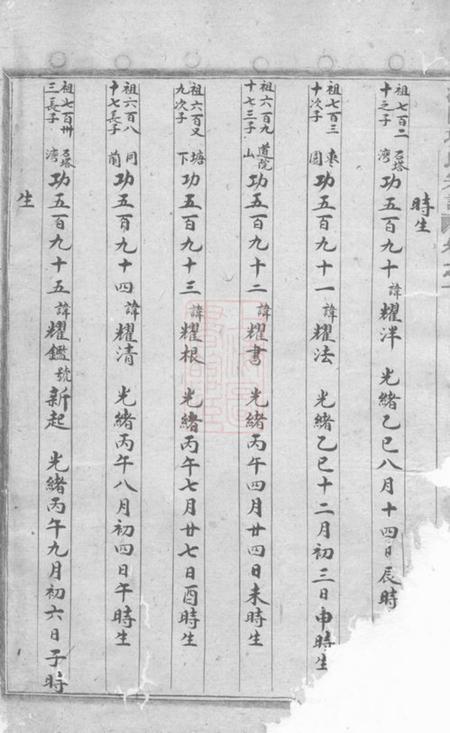 時生
祖七百二十之子 石塔湾 功五百九十 諱耀洋 光緒乙巳八月十四日辰時
祖七百三十次子 東園 功五百九十一 諱耀法 光緒乙巳十二月初三日申時生
祖六百九十七三子 道院山 功五百九十二 諱耀書 光緒丙午四月廿四日未時生
祖六百又九次子 塘下 功五百九十三 諱耀根 光緒丙午七月廿七日酉時生
祖六百八十七長子 前 功五百九十四 諱耀清 光緒丙午八月初四日午時生
祖七百卅三長子 石塔湾 功五百九十五 諱耀鑑 號新起 光緒丙午九月初六日子時
生